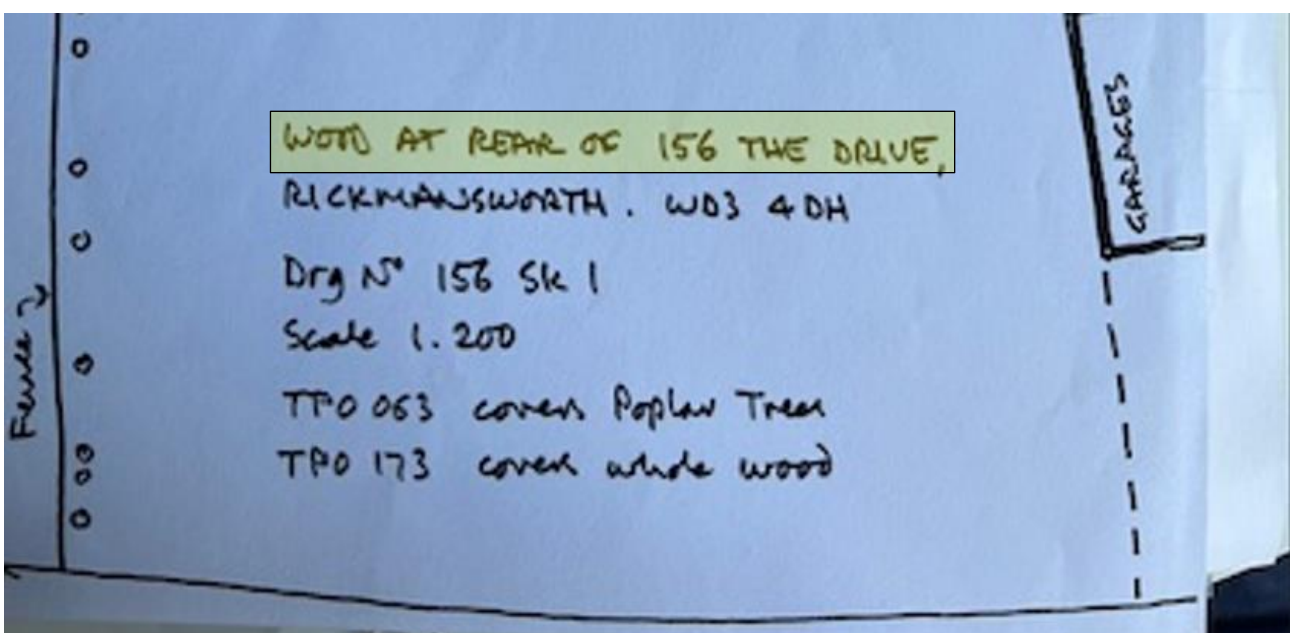 WOOD AT REAR OF 156 THE DRIVE,
RICKMANSWORTH. WD3 4DH
Drg No 156 Sk 1
Scale 1.200
TPO 063 covers Poplar Trees
TPO 173 covers whole wood
GARAGES
Fence